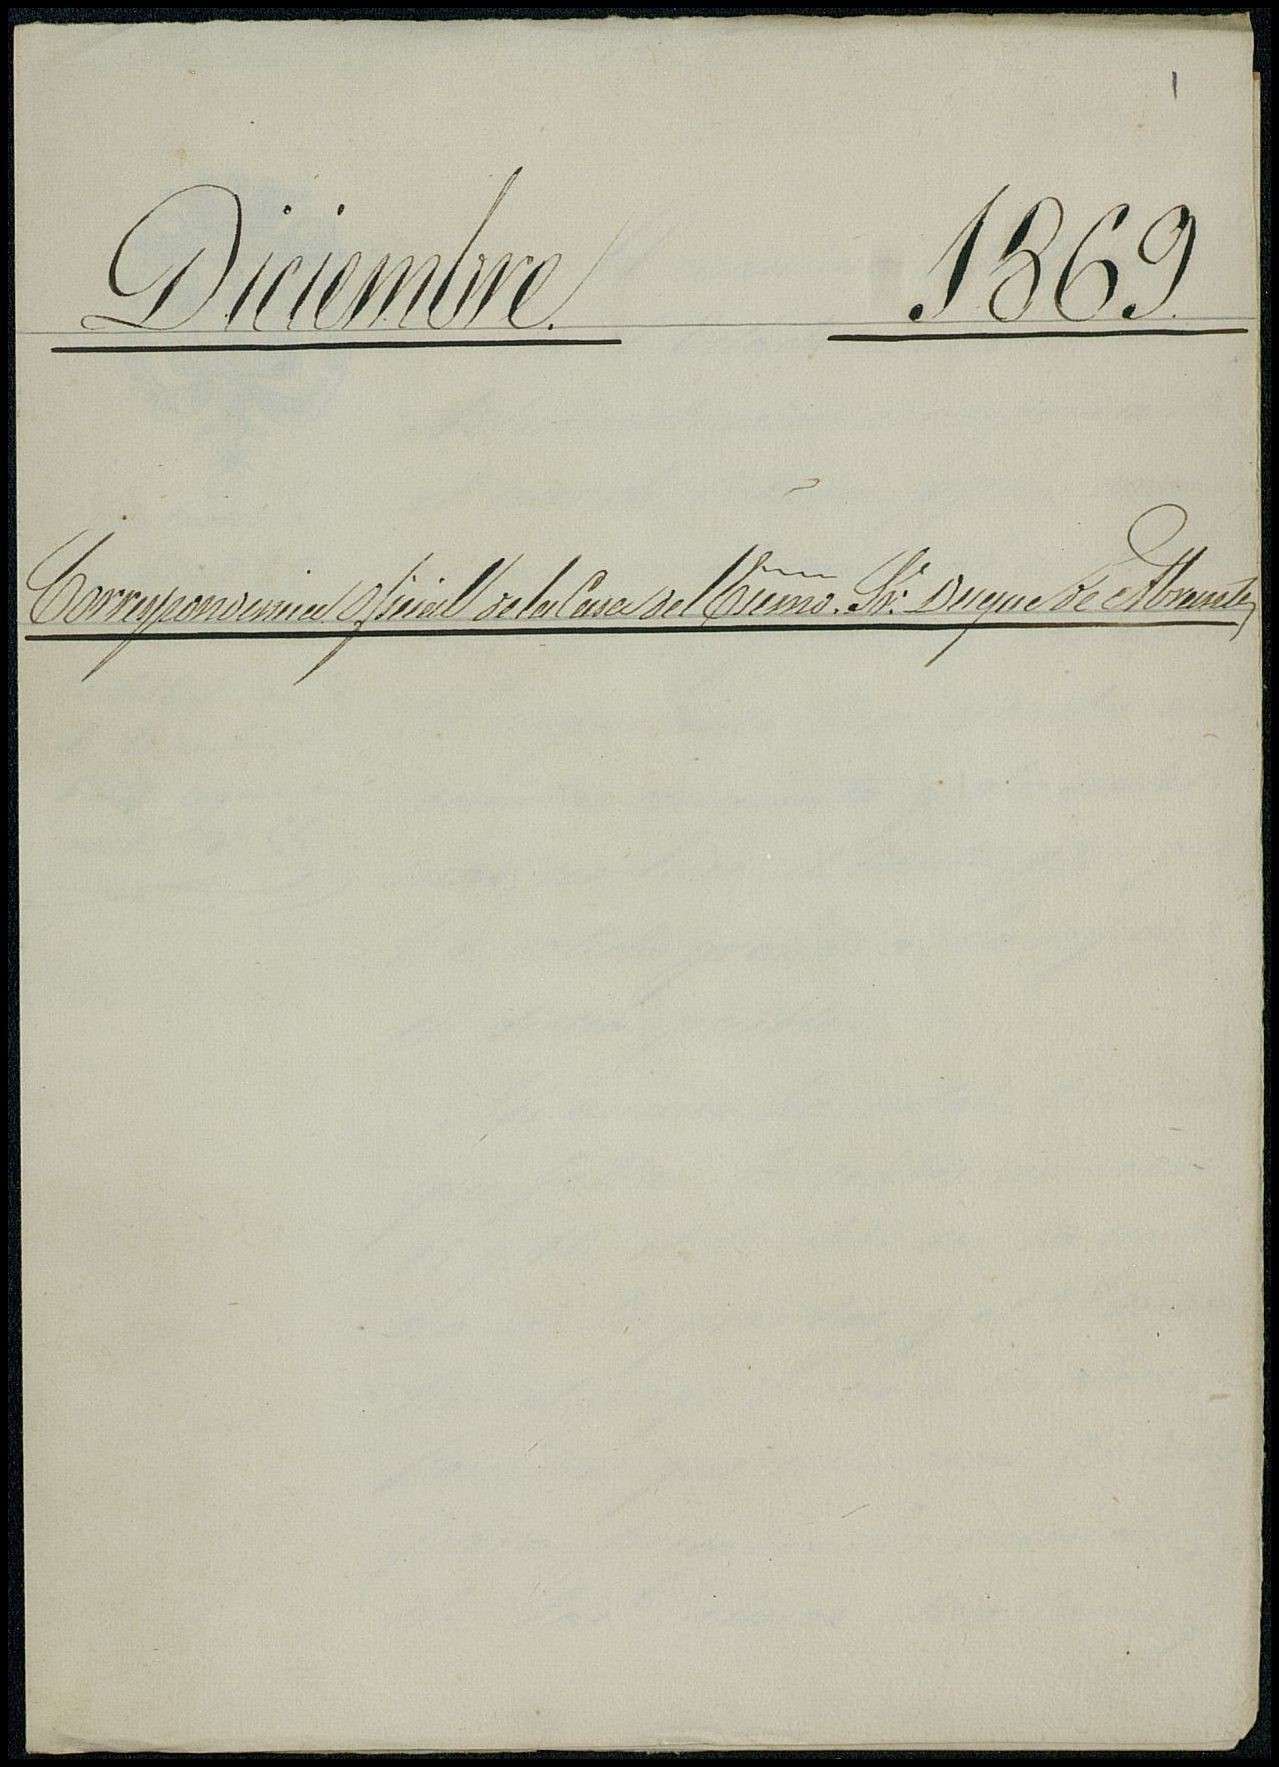 1
Diciembre. 1869.
Correspondencia oficial de la Casa del Ecmo. Sr. Duque de Abrantes